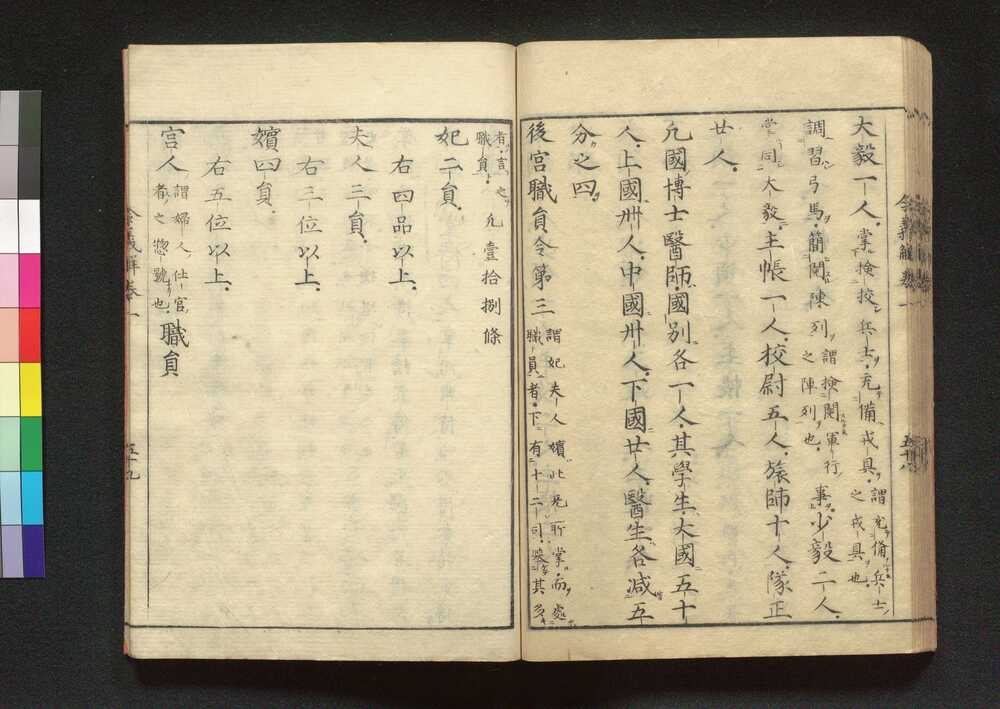 大毅一人。掌撿挍兵士。充備戎具。謂充備兵士之戎具也。
調習弓馬。簡閱陳列謂撿閱軍行之陣列也。事。少毅二人。
掌同大毅。主帳一人。校尉五人。旅師十人。隊正
廿人。
凡國博士醫師。國別各一人。其學生。大國五十
人。上國卌人。中國卅人。下國廿人。醫生各減五
分之四。
後宮職員令第三 謂妃夫人嬪。此无所掌。而處職員者。下有十二司。
者言之職員。凡壹拾捌條
妃二員。
右四品以上。
夫人三員。
右三位以上。
嬪四員。
右五位以上。
宮人謂婦人仕官者之惣號也。職員
令義解卷一
五十八
令義解卷一
五十九